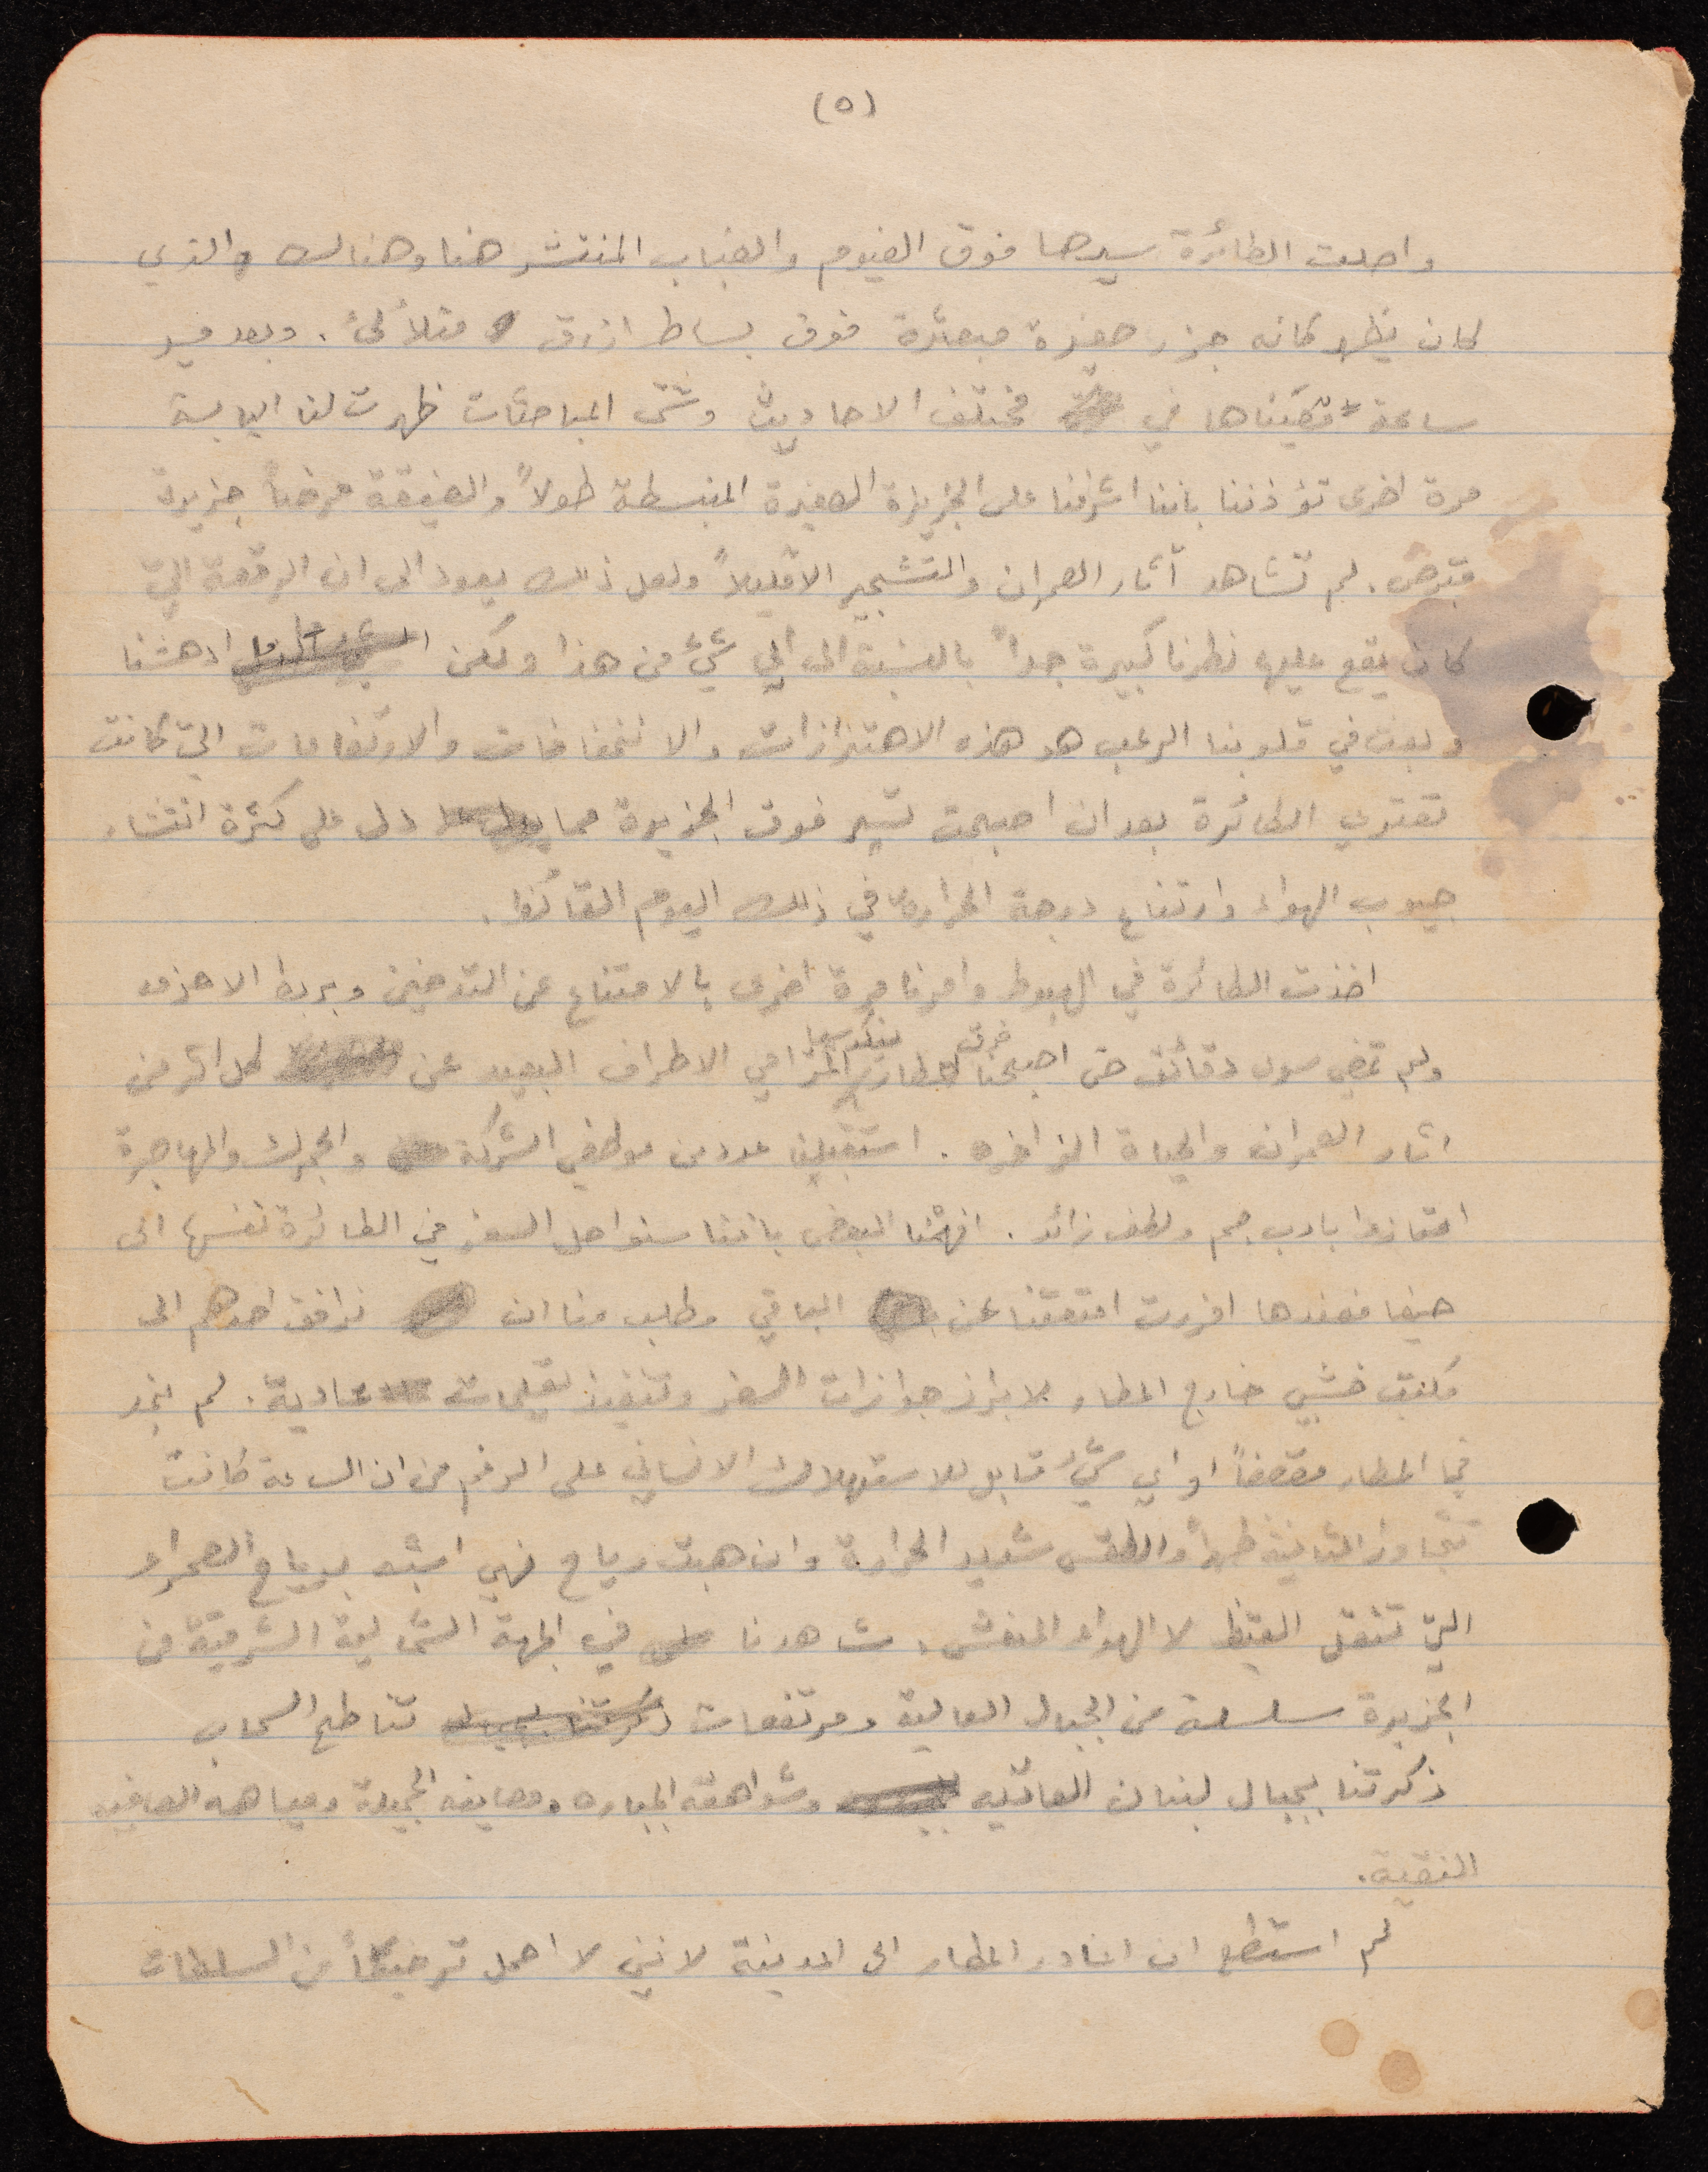 (٥)
واصلت الطائرة سيرها فوق الغيوم والضباب المنتشر هنا وهنالك والذي
كان يظهر كانه جزر صغيرة مبعثرة فوق بساط ازرق متلألئ. وبعد مسير
ساعة قضيناها في مختلف الاحاديث وشتى المباحثات ظهرت لنا اليابسة
مرة اخرى تؤذننا باننا اشرفنا على الجزيرة الصغيرة المنبسطة طولاً والضيقة عرضاً جزيرة
قبرص. لم نشاهد آثار العمران والتشجير الا قليلاً ولعل ذلك يعود الى ان الرقعة التي
كان يقع عليها نظرنا كبيرة جداً بالنسبة الى اي شيء من هذا ولكن ادهشنا
وبعث في قلوبنا الرعب هو هذه الاهتزازات والانخفاضات والارتفاعات التي كانت
تعتري الطائرة بعد ان اصبحت تسير فوق الجزيرة مما دل على كثرة انتشار
جيوب الهواء وارتفاع درجة الحرارة في ذلك اليوم القائظ.
اخذت الطائرة في الهبوط وامرنا مرة اخرى بالامتناع عن التدخين وبربط الاحزمه
ولم تمض سوى دقائق حتى اصبحنا فوق مطار نيكوسيا المترامي الاطراف البعيد عن كل اثر من
اثار العمران والحياة الزاخره. استقبلنا عدد من موظفي الشركة والجمرك والمهاجرة
امتازوا بادب جم ولطف زائد. افهمنا البعض باننا سنواصل السفر في الطائرة نفسها الى
حيفا فعندها افرزت امتعتنا عن الباقي وطلب منا ان نرافق احدهم الى
مكتب خشبي خارج المطار لابراز جوازات السفر وتنفيذ تعليمات عادية. لم نجد
في المطار مقصفاً او اي شيء قابل للاستهلاك الانساني على الرغم من ان الساعة كانت
تتجاوز الثانية ظهراً والطقس شديد الحرارة وان هبت رياح فهي اشبه برياح الصحراء
التي تنقل القيظ لا الهواء المنعش. شاهدنا في الجهة الشمالية الشرقية من
الجزيرة سلسلة من الجبال العالية ومرتفعات تناطح السحاب
ذكرتنا بجبال لبنان العاتيه وشواهقه الجباره ومصايفه الجميلة ومياهه الصافيه
النقية.
لم استطع ان اغادر المطار الى المدينة لانني لا احمل ترخيصاً من السلطات